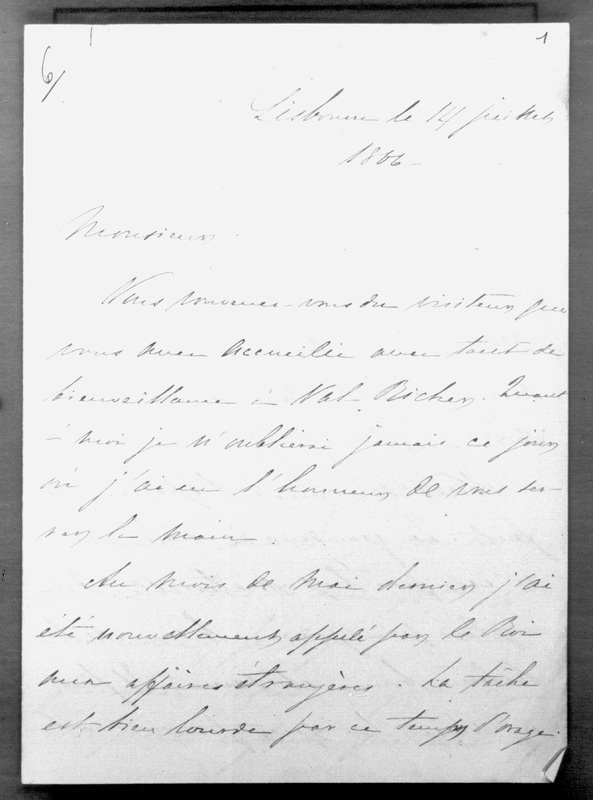 6/
1
Lisbonne le 14 juillet
1866 -
Monsieur
Vous souvenez-vous du visiteur que
vous avez accueilli avec tant de
bienveillance à Val Richer. Quant
à moi je n'oublierai jamais ce jour
où j'ai eu l'honneur de vous ser-
rer la main.
Au mois de mai dernier j'ai
été nouvellement appelé par le Roi
aux affaires étrangères. La tâche
est bien lourde par ce temps d'orage.